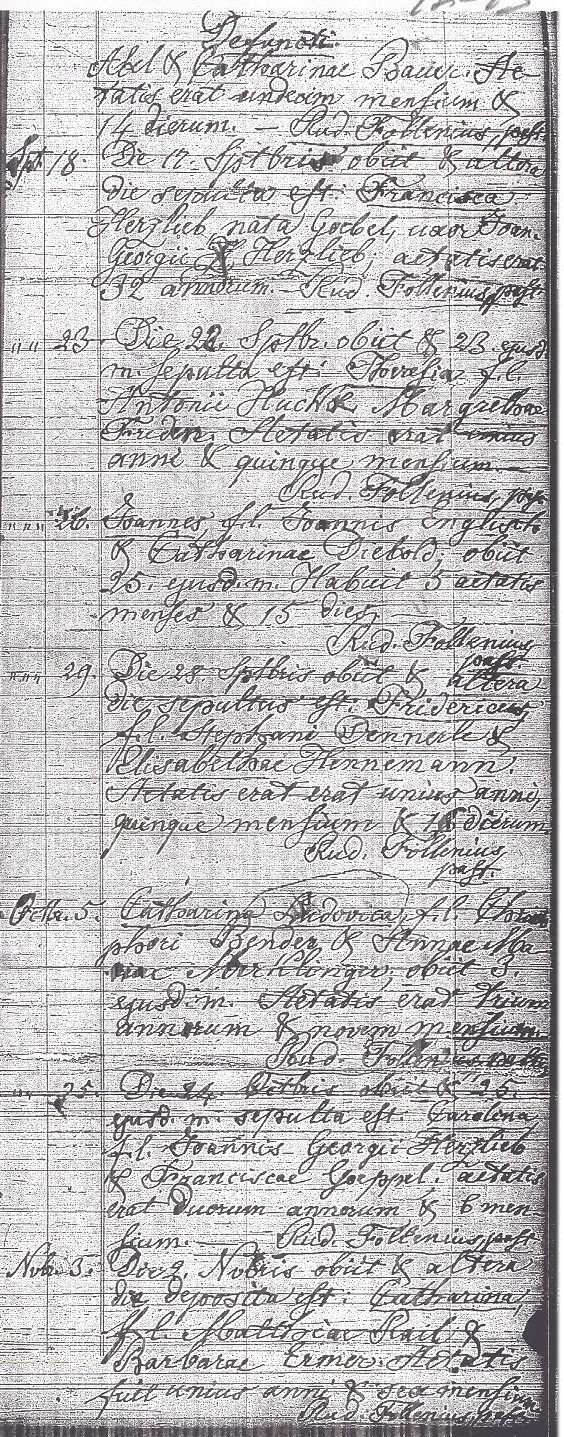 Defuncti.
Abel & Catharinae Bauer. Ae-
tatis erat undecim mensium &
14 dierum. — Rud. Follenius, past.
Spt. 18. Die 17. Sptbris obiit & altera
die sepulta est: Francisca
Herzlieb, nata Goebel, uxor Joan.
Georgii Herzlieb; aetatis erat
32 annorum. — Rud. Follenius, past.
"" 23. Die 22. Sptbr. obiit & 23. ejusd.
m. sepulta est: Theresia, f. l.
Antonii & Margrethae
Friden. Aetatis erat unius
anni & quinque mensium. —
Rud. Follenius, past.
""" 26. Joannes, f. l. Joannis Englisch
& Catharinae Diebold, obiit
25. ejusd. m. Habuit 5 aetatis
menses & 15 dies.
Rud. Follenius
past.
""" 29. Die 28. Sptbris obiit & altera
die sepultus est: Fridericus
f. l. Stephani Dennerle &
Elisabethae Hennemann.
Aetatis erat erat unius anni,
quinque mensium & dierum
Rud. Follenius
past.
Octbr. 5. Catharina Ludovica, f. l. Chris-
phori Bender & Annae Ma-
riae Merklinger, obiit 3.
ejusd. m. Aetatis erat trium
annorum & novem mensium.
Rud. Follenius past.
"" 25. Die 24. Octbris obiit & 25.
ejusd. m. sepulta est: Carolina,
f. l. Joannis Georgii Herzlieb
& Franciscae Goeppel. aetatis
erat duorum annorum & 6 men-
sium. — Rud. Follenius, past.
Nvbr. 3. Die 2. Nvbris obiit & altera
die deposita est: Catharina,
f. l. Matthiae Kail &
Barbarae Ermer. Aetatis
fuit unius anni & sex mensium
Rud. Follenius, past.